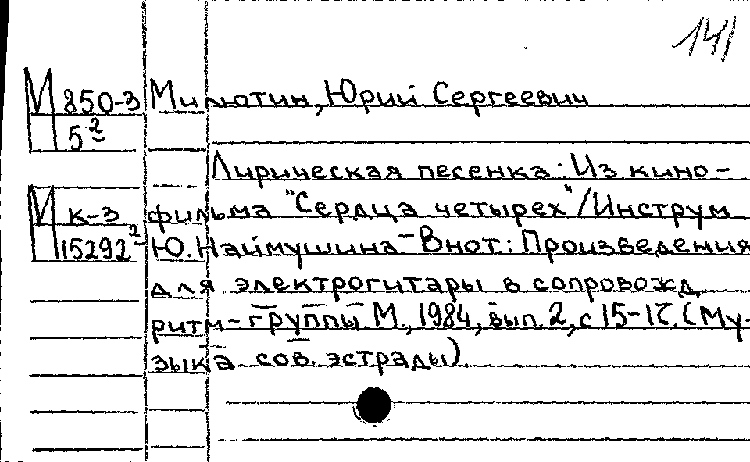 141
М 850-3 Милютин, Юрий Сергеевич
5²
Лирическая песенка: Из кино-
М к-3 фильма "Сердца четырех"/Инструм
15292² Ю. Наймушина – В нот: Произведения
для электрогитары в сопровожд
ритм-группы М., 1984, вып. 2, с 15-17. (Му-
зыка сов. эстрады)